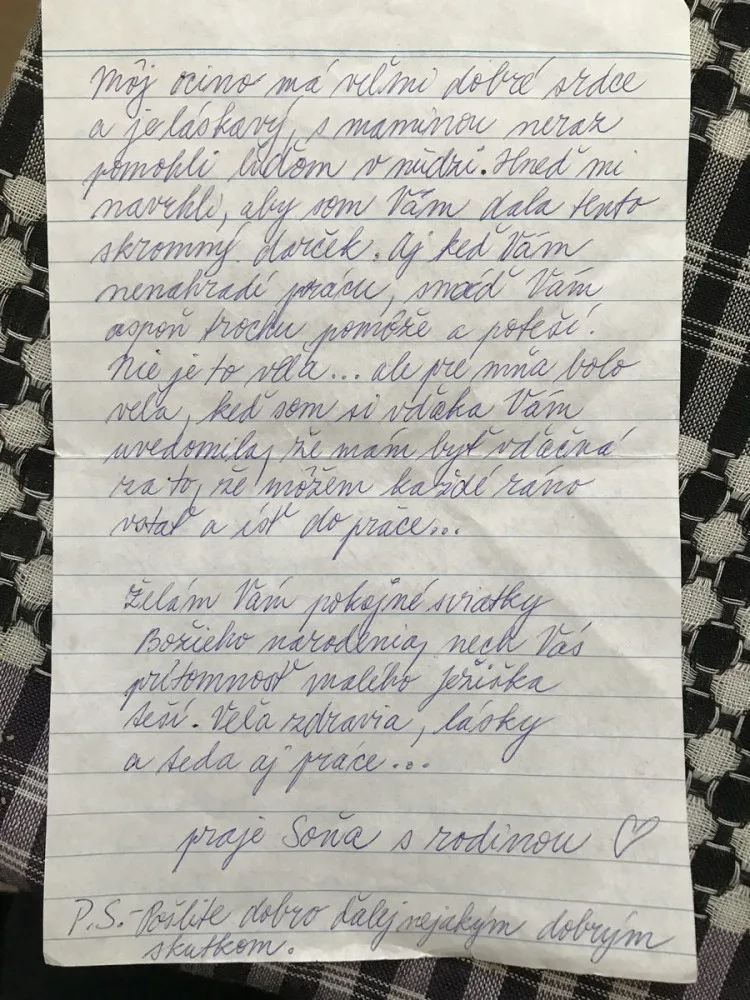 Môj ocino má veľmi dobré srdce
a je láskavý, s maminou neraz
pomohli ľuďom v núdzi. Hneď mi
navrhli, aby som Vám dala tento
skromný darček. Aj keď Vám
nenahradí prácu, snáď Vám
aspoň trochu pomôže a poteší.
Nie je to veľa... ale pre mňa bolo
veľa, keď som si vďaka Vám
uvedomila, že mám byť vďačná
za to, že môžem každé ráno
vstať a ísť do práce...
Želám Vám pokojné sviatky
Božieho narodenia, nech Vás
prítomnosť malého Ježiška
teší. Veľa zdravia, lásky
a teda aj práce...
praje Soňa s rodinou ♡
P.S.- Pošlite dobro ďalej nejakým dobrým
skutkom.